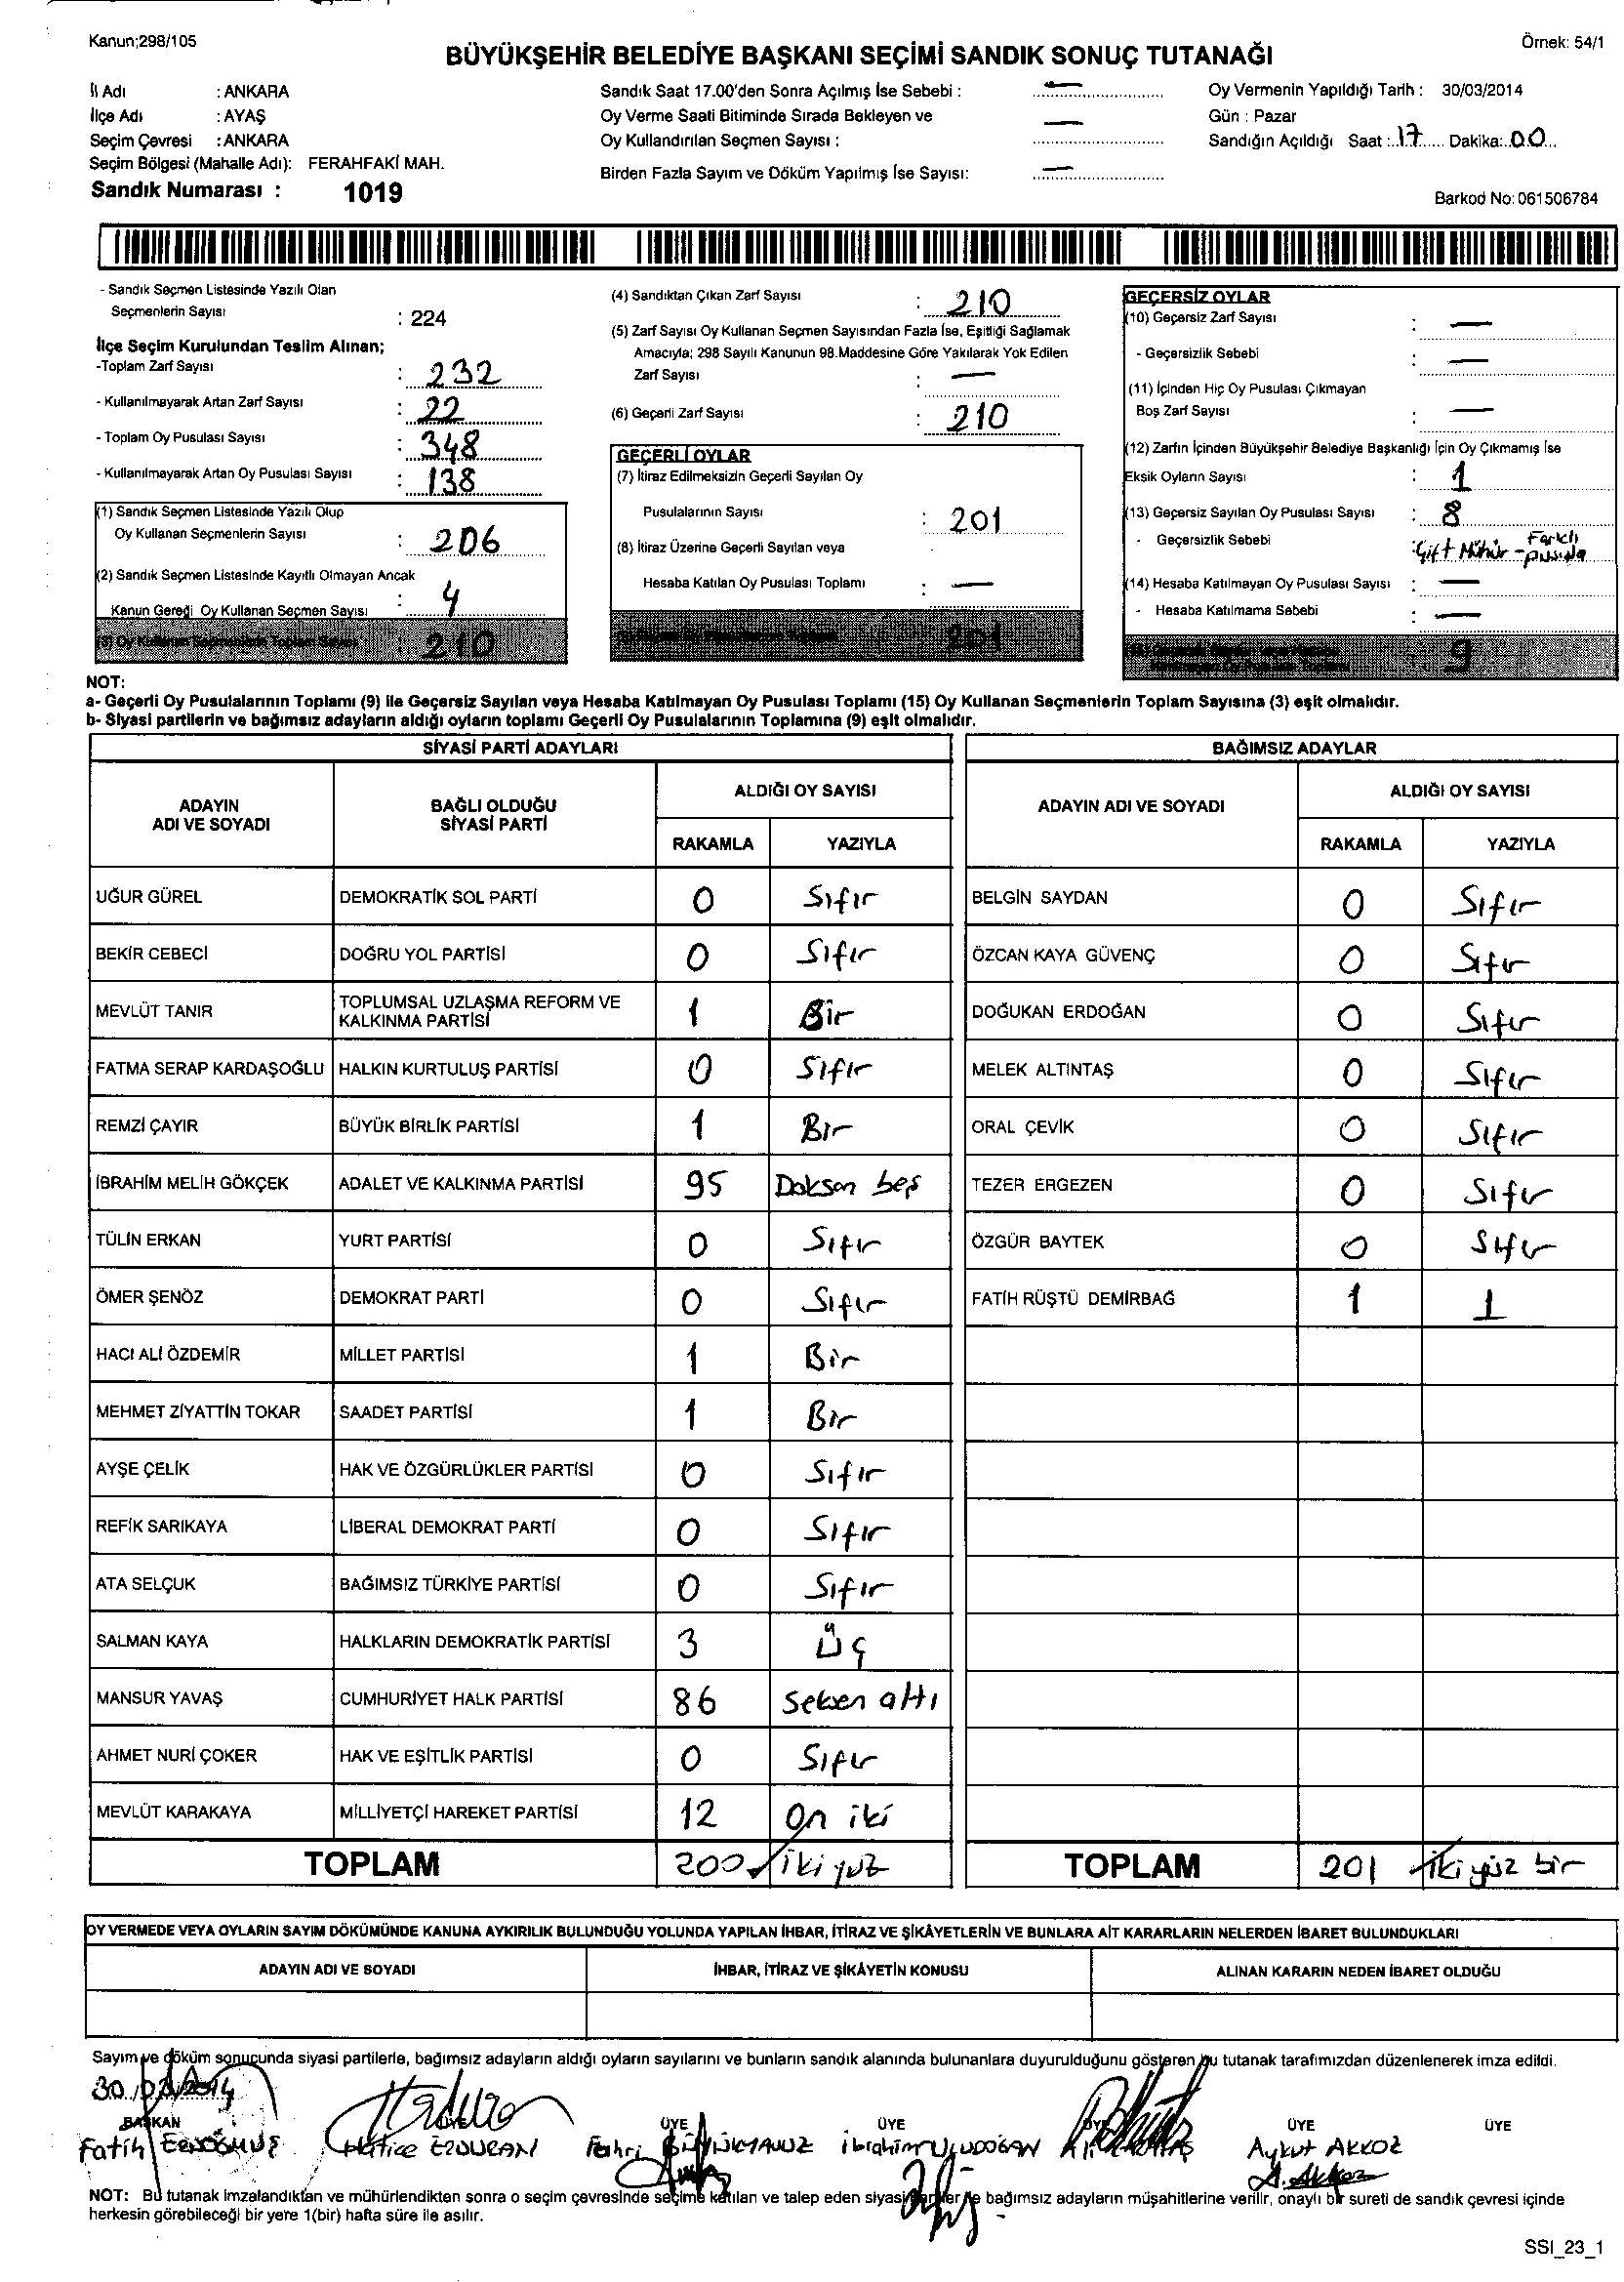 Kanun;298/105
Örnek: 54/1
BÜYÜKŞEHİR BELEDİYE BAŞKANI SEÇİMİ SANDIK SONUÇ TUTANAĞI
İl Adı : ANKARA
İlçe Adı : AYAŞ
Seçim Çevresi : ANKARA
Seçim Bölgesi (Mahalle Adı): FERAHFAKİ MAH.
Sandık Numarası : 1019
Sandık Saat 17.00'den Sonra Açılmış İse Sebebi : —
Oy Verme Saati Bitiminde Sırada Bekleyen ve
Oy Kullandırılan Seçmen Sayısı : —
Birden Fazla Sayım ve Döküm Yapılmış İse Sayısı: —
Oy Vermenin Yapıldığı Tarih : 30/03/2014
Gün : Pazar
Sandığın Açıldığı Saat : 17 Dakika: 00
Barkod No: 061506784
- Sandık Seçmen Listesinde Yazılı Olan
Seçmenlerin Sayısı : 224
İlçe Seçim Kurulundan Teslim Alınan;
-Toplam Zarf Sayısı : 232
- Kullanılmayarak Artan Zarf Sayısı : 22
- Toplam Oy Pusulası Sayısı : 348
- Kullanılmayarak Artan Oy Pusulası Sayısı : 138
(1) Sandık Seçmen Listesinde Yazılı Olup
Oy Kullanan Seçmenlerin Sayısı : 206
(2) Sandık Seçmen Listesinde Kayıtlı Olmayan Ancak
Kanun Gereği Oy Kullanan Seçmen Sayısı : 4
(3) Oy Kullanan Seçmenlerin Toplam Sayısı : 210
(4) Sandıktan Çıkan Zarf Sayısı : 210
(5) Zarf Sayısı Oy Kullanan Seçmen Sayısından Fazla İse, Eşitliği Sağlamak
Amacıyla; 298 Sayılı Kanunun 98.Maddesine Göre Yakılarak Yok Edilen
Zarf Sayısı : —
(6) Geçerli Zarf Sayısı : 210
GEÇERLİ OYLAR
(7) İtiraz Edilmeksizin Geçerli Sayılan Oy
Pusulalarının Sayısı : 201
(8) İtiraz Üzerine Geçerli Sayılan veya
Hesaba Katılan Oy Pusulası Toplamı : —
201
GEÇERSİZ OYLAR
(10) Geçersiz Zarf Sayısı : —
- Geçersizlik Sebebi : —
(11) İçinden Hiç Oy Pusulası Çıkmayan
Boş Zarf Sayısı : —
(12) Zarfın İçinden Büyükşehir Belediye Başkanlığı İçin Oy Çıkmamış İse
Eksik Oyların Sayısı : 1
(13) Geçersiz Sayılan Oy Pusulası Sayısı : 8
- Geçersizlik Sebebi : Çift Mühür - Farklı pusula
(14) Hesaba Katılmayan Oy Pusulası Sayısı : —
- Hesaba Katılmama Sebebi : —
9
NOT:
a- Geçerli Oy Pusulalarının Toplamı (9) ile Geçersiz Sayılan veya Hesaba Katılmayan Oy Pusulası Toplamı (15) Oy Kullanan Seçmenlerin Toplam Sayısına (3) eşit olmalıdır.
b- Siyasi partilerin ve bağımsız adayların aldığı oyların toplamı Geçerli Oy Pusulalarının Toplamına (9) eşit olmalıdır.
SİYASİ PARTİ ADAYLARI
ADAYIN ADI VE SOYADI BAĞLI OLDUĞU SİYASİ PARTİ ALDIĞI OY SAYISI
RAKAMLA YAZIYLA
UĞUR GÜREL DEMOKRATİK SOL PARTİ 0 Sıfır
BEKİR CEBECİ DOĞRU YOL PARTİSİ 0 Sıfır
MEVLÜT TANIR TOPLUMSAL UZLAŞMA REFORM VE KALKINMA PARTİSİ 1 Bir
FATMA SERAP KARDAŞOĞLU HALKIN KURTULUŞ PARTİSİ 0 Sıfır
REMZİ ÇAYIR BÜYÜK BİRLİK PARTİSİ 1 Bir
İBRAHİM MELİH GÖKÇEK ADALET VE KALKINMA PARTİSİ 95 Doksan beş
TÜLİN ERKAN YURT PARTİSİ 0 Sıfır
ÖMER ŞENÖZ DEMOKRAT PARTİ 0 Sıfır
HACI ALİ ÖZDEMİR MİLLET PARTİSİ 1 Bir
MEHMET ZİYATTİN TOKAR SAADET PARTİSİ 1 Bir
AYŞE ÇELİK HAK VE ÖZGÜRLÜKLER PARTİSİ 0 Sıfır
REFİK SARIKAYA LİBERAL DEMOKRAT PARTİ 0 Sıfır
ATA SELÇUK BAĞIMSIZ TÜRKİYE PARTİSİ 0 Sıfır
SALMAN KAYA HALKLARIN DEMOKRATİK PARTİSİ 3 Üç
MANSUR YAVAŞ CUMHURİYET HALK PARTİSİ 86 Seksen altı
AHMET NURİ ÇOKER HAK VE EŞİTLİK PARTİSİ 0 Sıfır
MEVLÜT KARAKAYA MİLLİYETÇİ HAREKET PARTİSİ 12 On iki
TOPLAM 200 İki yüz
BAĞIMSIZ ADAYLAR
ADAYIN ADI VE SOYADI ALDIĞI OY SAYISI
RAKAMLA YAZIYLA
BELGİN SAYDAN 0 Sıfır
ÖZCAN KAYA GÜVENÇ 0 Sıfır
DOĞUKAN ERDOĞAN 0 Sıfır
MELEK ALTINTAŞ 0 Sıfır
ORAL ÇEVİK 0 Sıfır
TEZER ERGEZEN 0 Sıfır
ÖZGÜR BAYTEK 0 Sıfır
FATİH RÜŞTÜ DEMİRBAĞ 1 1
TOPLAM 201 İki yüz bir
OY VERMEDE VEYA OYLARIN SAYIM DÖKÜMÜNDE KANUNA AYKIRILIK BULUNDUĞU YOLUNDA YAPILAN İHBAR, İTİRAZ VE ŞİKÂYETLERİN VE BUNLARA AİT KARARLARIN NELERDEN İBARET BULUNDUKLARI
ADAYIN ADI VE SOYADI İHBAR, İTİRAZ VE ŞİKÂYETİN KONUSU ALINAN KARARIN NEDEN İBARET OLDUĞU
Sayım ve döküm sonucunda siyasi partilerle, bağımsız adayların aldığı oyların sayılarını ve bunların sandık alanında bulunanlara duyurulduğunu gösteren bu tutanak tarafımızdan düzenlenerek imza edildi.
30/03/2014
BAŞKAN ÜYE ÜYE ÜYE ÜYE ÜYE ÜYE
Fatih Hatice Fahri İbrahim ULUDOĞAN Ali Aykut AKKOZ
A. Akkoz
NOT: Bu tutanak imzalandıktan ve mühürlendikten sonra o seçim çevresinde seçime katılan ve talep eden siyasi partiler ile bağımsız adayların müşahitlerine verilir, onaylı bir sureti de sandık çevresi içinde
herkesin görebileceği bir yere 1(bir) hafta süre ile asılır.
SSI_23_1